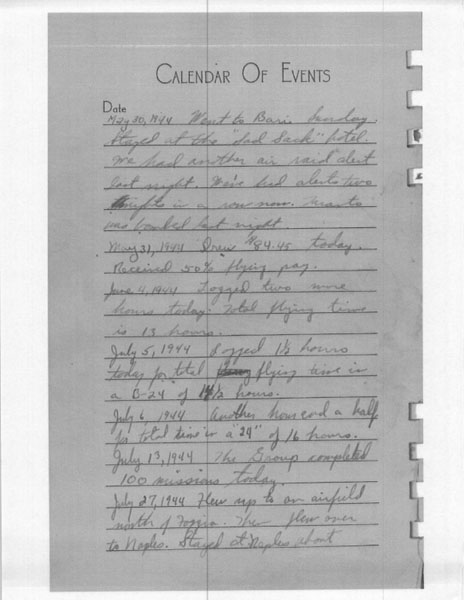 CALENDAR OF EVENTS
Date
May 30, 1944 Went to Bari Sunday.
Stayed at the "Sad Sack" hotel.
We had another air raid alert
last night. We've had alerts two
nights in a row now.
was bombed last night
May 31, 1944 Drew $84.45 today.
Received 50% flying pay.
June 4, 1944 Logged two more
hours today. Total flying time
is 13 hours.
July 5, 1944 Logged 1½ hours
today for total flying time in
a B-24 of 14½ hours.
July 6, 1944 Another hour and a half
for total time in a "24" of 16 hours.
July 13, 1944 The Group completed
100 missions today.
July 27, 1944 Flew up to an airfield
north of Foggia. Then flew over
to Naples. Stayed at Naples about